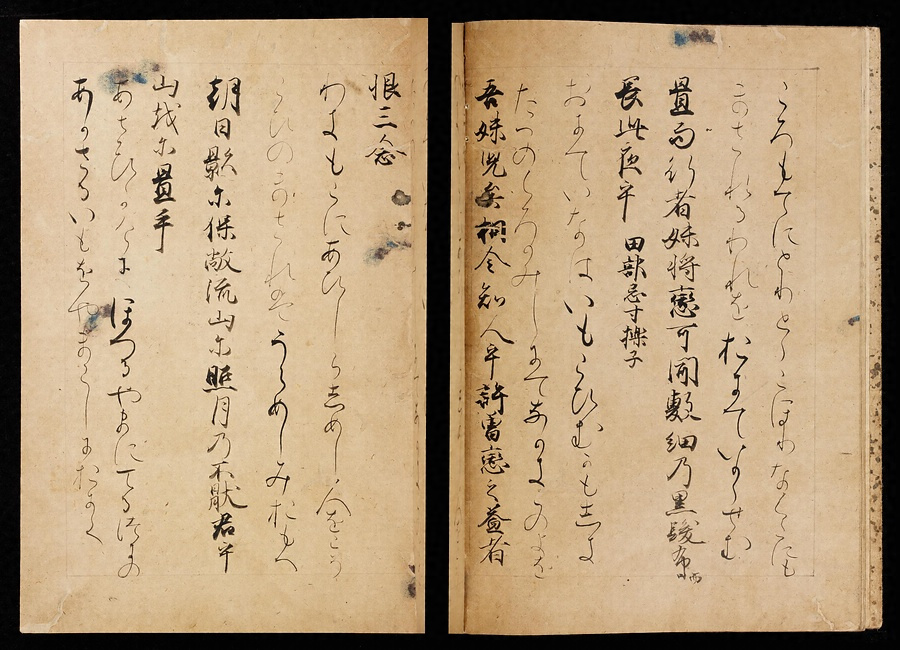 ころもてにとりとゝこほりなくこにも
まされるわれをおきていかにせむ
置而行者妹将戀可聞敷細乃黒髪布而
長此夜乎 田部忌寸櫟子
おきていなはいもこひむかもしき
たへのくろかみしきてなかきこのよを
吾妹兒矣相令知人乎許曽戀之益者
恨三念
わきもこにあひしらしめし人をこそ
こひのまされはうらめしみおもへ
朝日影尓保敝流山尓照月乃不猒君乎
山越尓置手
あさひかけにほへるやまにてる月の
あかさるいもをやまこしにおきて